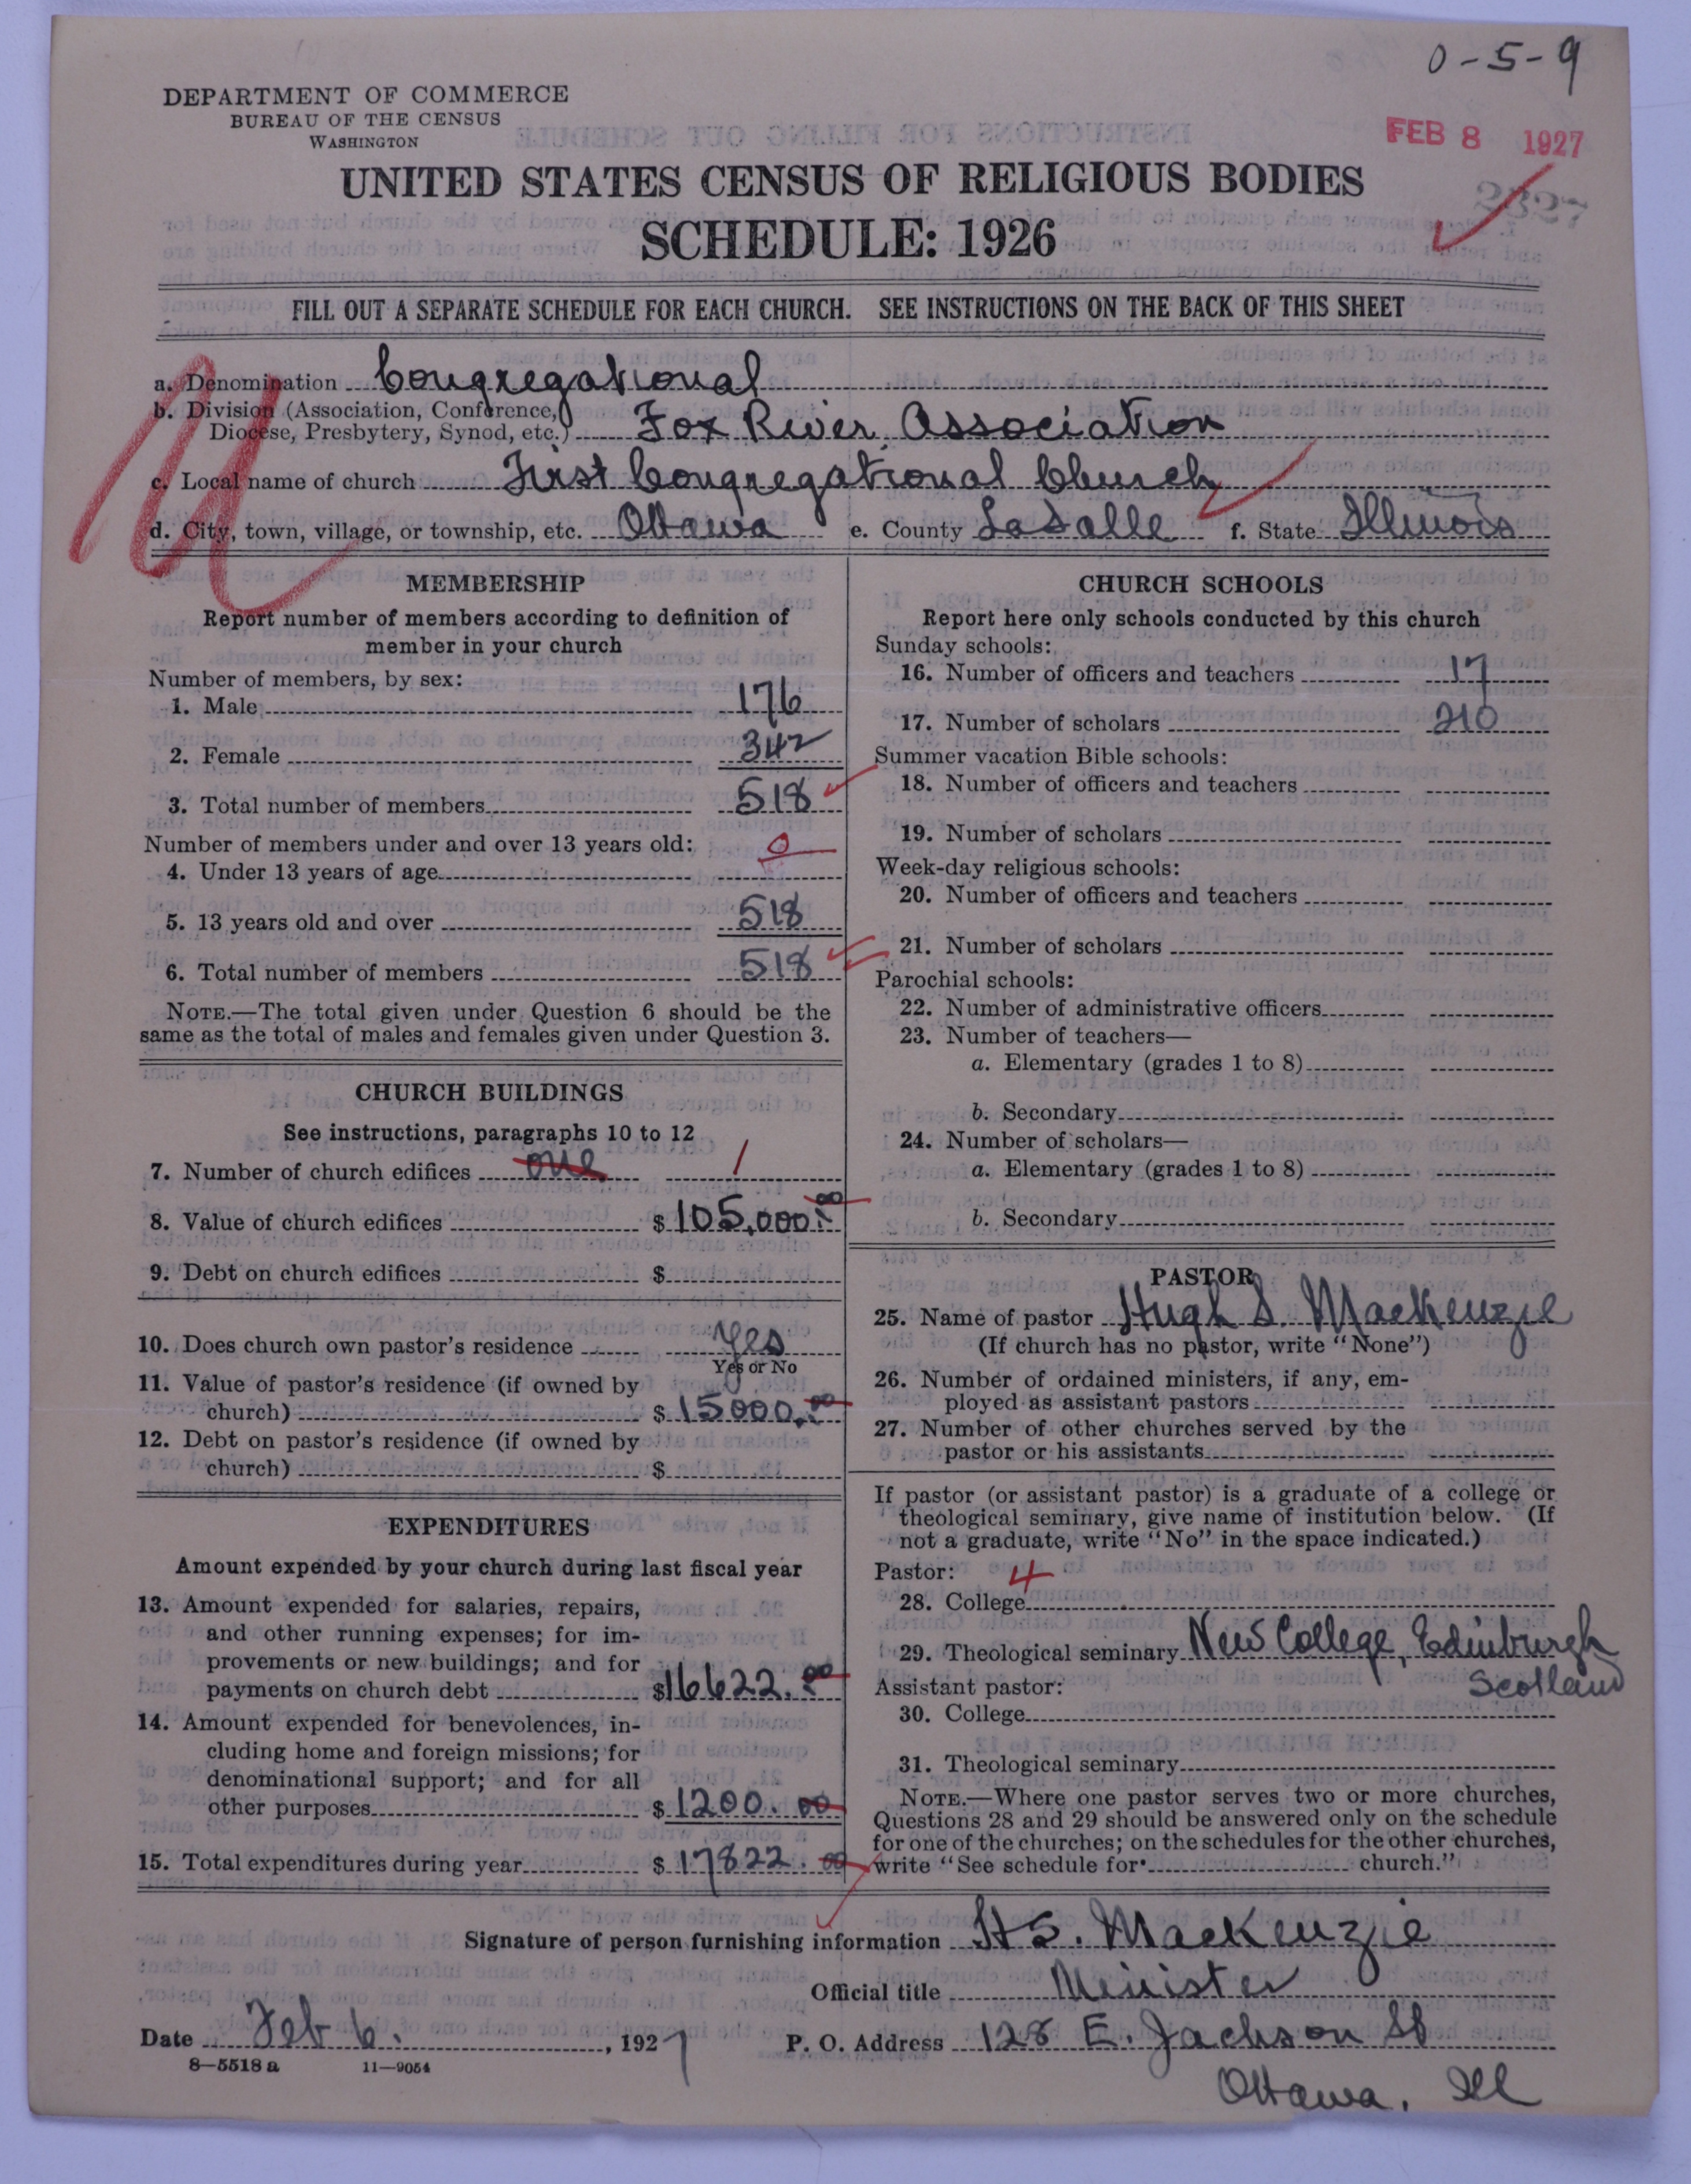 0-5-9
DEPARTMENT OF COMMERCE
BUREAU OF THE CENSUS
WASHINGTON
FEB 8 1927
UNITED STATES CENSUS OF RELIGIOUS BODIES
2327
SCHEDULE: 1926
FILL OUT A SEPARATE SCHEDULE FOR EACH CHURCH. SEE INSTRUCTIONS ON THE BACK OF THIS SHEET
a. Denomination Congregational
b. Division (Association, Conference,
Diocese, Presbytery, Synod, etc.) Fox River Association
c. Local name of church First Congregational Church
d. City, town, village, or township, etc. Ottawa e. County LaSalle f. State Illinois
MEMBERSHIP
Report number of members according to definition of
member in your church
Number of members, by sex:
1. Male 176
2. Female 342
3. Total number of members 518
Number of members under and over 13 years old:
4. Under 13 years of age 0
5. 13 years old and over 518
6. Total number of members 518
NOTE.—The total given under Question 6 should be the
same as the total of males and females given under Question 3.
CHURCH BUILDINGS
See instructions, paragraphs 10 to 12
7. Number of church edifices one 1
8. Value of church edifices $ 105,000.00
9. Debt on church edifices $
10. Does church own pastor's residence Yes
Yes or No
11. Value of pastor's residence (if owned by
church) $ 15000.00
12. Debt on pastor's residence (if owned by
church) $
EXPENDITURES
Amount expended by your church during last fiscal year
13. Amount expended for salaries, repairs,
and other running expenses; for im-
provements or new buildings; and for
payments on church debt $16622.00
14. Amount expended for benevolences, in-
cluding home and foreign missions; for
denominational support; and for all
other purposes $ 1200.00
15. Total expenditures during year $ 17822.00
CHURCH SCHOOLS
Report here only schools conducted by this church
Sunday schools:
16. Number of officers and teachers 17
17. Number of scholars 210
Summer vacation Bible schools:
18. Number of officers and teachers
19. Number of scholars
Week-day religious schools:
20. Number of officers and teachers
21. Number of scholars
Parochial schools:
22. Number of administrative officers
23. Number of teachers—
a. Elementary (grades 1 to 8)
b. Secondary
24. Number of scholars—
a. Elementary (grades 1 to 8)
b. Secondary
PASTOR
25. Name of pastor Hugh S. MacKenzie
(If church has no pastor, write "None")
26. Number of ordained ministers, if any, em-
ployed as assistant pastors
27. Number of other churches served by the
pastor or his assistants
If pastor (or assistant pastor) is a graduate of a college or
theological seminary, give name of institution below. (If
not a graduate, write "No" in the space indicated.)
Pastor: 4
28. College
29. Theological seminary New College, Edinburgh
Scotland
Assistant pastor:
30. College
31. Theological seminary
NOTE.—Where one pastor serves two or more churches,
Questions 28 and 29 should be answered only on the schedule
for one of the churches; on the schedules for the other churches,
write "See schedule for church."
Signature of person furnishing information H S. MacKenzie
Official title Minister
Date Feb 6., 1927 P. O. Address 128 E. Jackson St
Ottawa, Ill
8—5518 a 11—9054